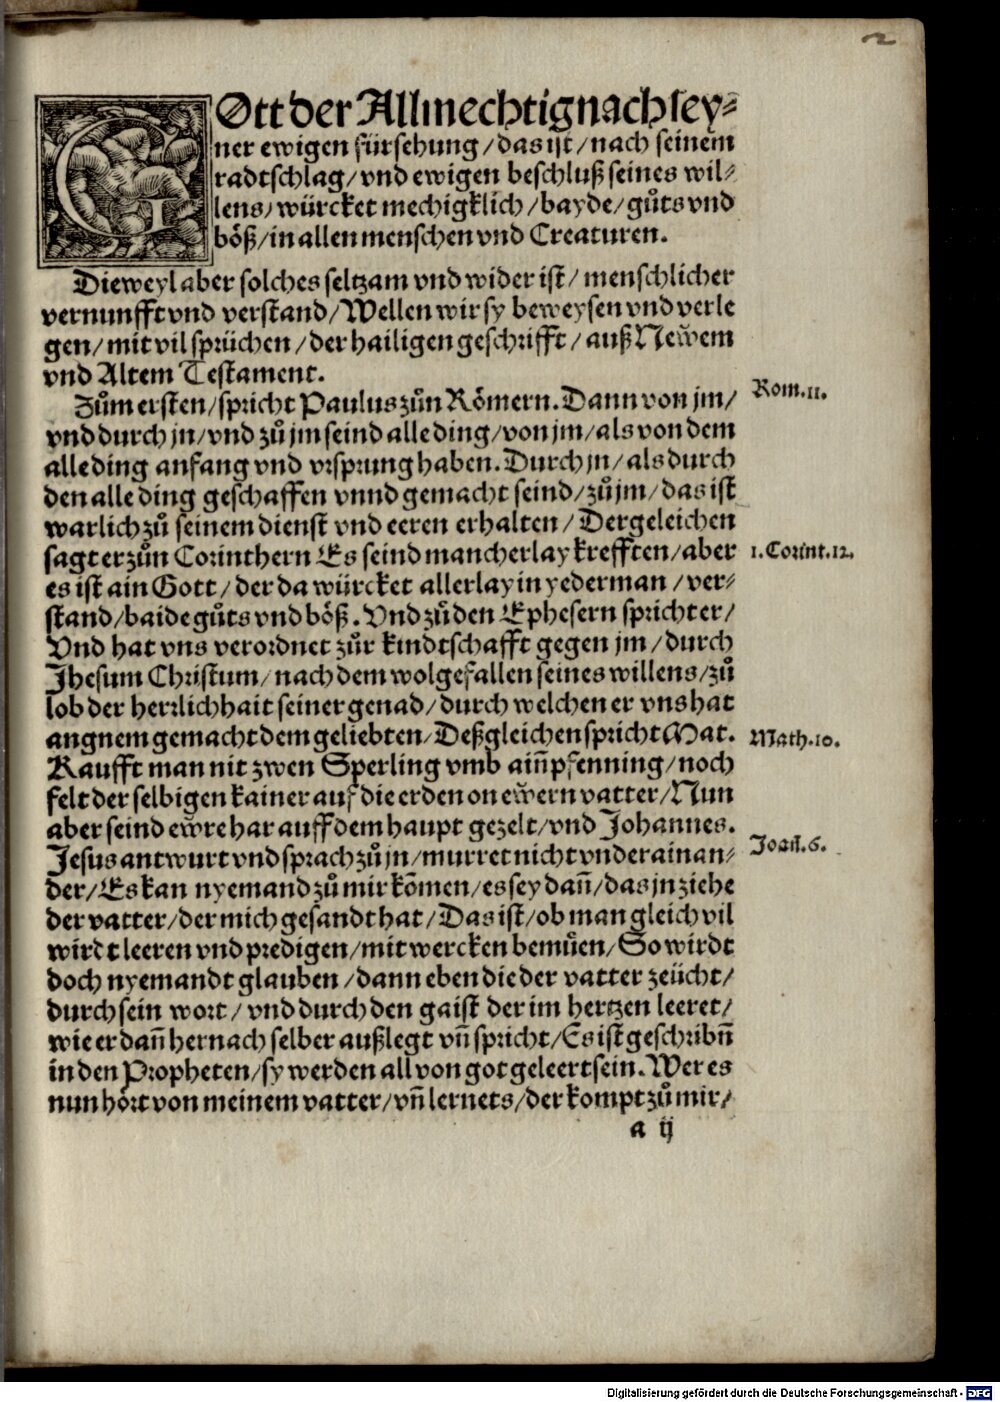 2
GOtt der Allmechtig nach sey⸗
ner ewigen fürsehung / das ist / nach seinem
radtschlag / vnd ewigen beschluß seines wil⸗
lens / würcket mechigklich / bayde / gůts vnd
böß / in allen menschen vnd Creaturen.
Dieweyl aber solches seltzam vnd wider ist / menschlicher
vernunfft vnd verstand / Wellen wir sy beweysen vnd verle
gen / mit vil sprüchen / der hailigen geschrifft / auß Newem
vnd Altem Testament.
Zům ersten / spricht Paulus zůn Römern. Dann von jm /
Rom. 11.
vnd durch jn / vnd zů jm seind alle ding / von jm / als von dem
alle ding anfang vnd vrsprung haben. Durch jn / als durch
den alle ding geschaffen vnnd gemacht seind / zů jm / das ist
warlich zů seinem dienst vnd eeren erhalten / Dergeleichen
sagt er zůn Corinthern Es seind mancherlay krefften / aber
1. Corint. 12.
es ist ain Gott / der da würcket allerlay in yederman / ver⸗
stand / baide gůts vnd böß. Vnd zů den Ephesern spricht er /
Vnd hat vns verordnet zůr kindtschafft gegen jm / durch
Jhesum Christum / nach dem wolgefallen seines willens / zů
lob der herrlichhait seiner genad / durch welchen er vns hat
angnem gemacht dem geliebten / Deßgleichen spricht Mat.
Math. 10.
Kaufft man nit zwen Sperling vmb aiñ pfenning / noch
felt der selbigen kainer auf die erden on ewern vatter / Nun
aber seind ewre har auff dem haupt gezelt / vnd Johannes.
Jesus antwurt vnd sprach zů jn / murret nicht vnder ainan⸗
Joañ. 6.
der / Es kan nyemand zů mir kom̃en / es sey dañ / das jn ziehe
der vatter / der mich gesandt hat / Das ist / ob man gleich vil
wirdt leeren vnd predigen / mit wercken bemůen / So wirdt
doch nyemandt glauben / dann eben die der vatter zeücht /
durch sein wort / vnd durch den gaist der im hertzen leeret /
wie er dañ hernach selber außlegt vñ spricht / Es ist geschribñ
in den Propheten / sy werden all von got geleert sein. Wer es
nun hört von meinem vatter / vñ lernets / der kompt zů mir /
a ij
Digitalisierung gefördert durch die Deutsche Forschungsgemeinschaft · DFG